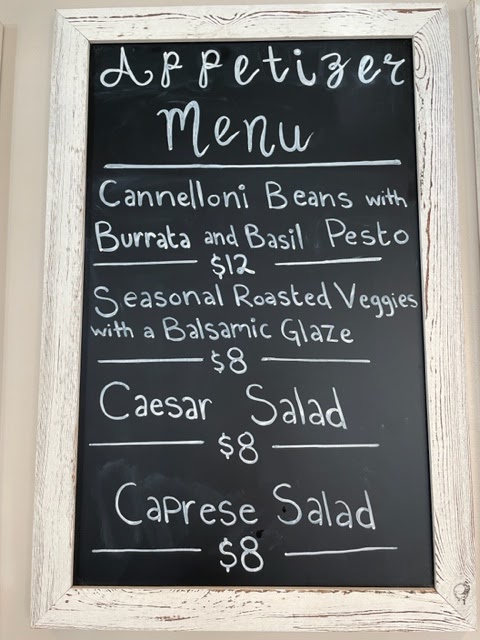 Appetizer
Menu
Cannelloni Beans with
Burrata and Basil Pesto
$12
Seasonal Roasted Veggies
with a Balsamic Glaze
$8
Caesar Salad
$8
Caprese Salad
$8